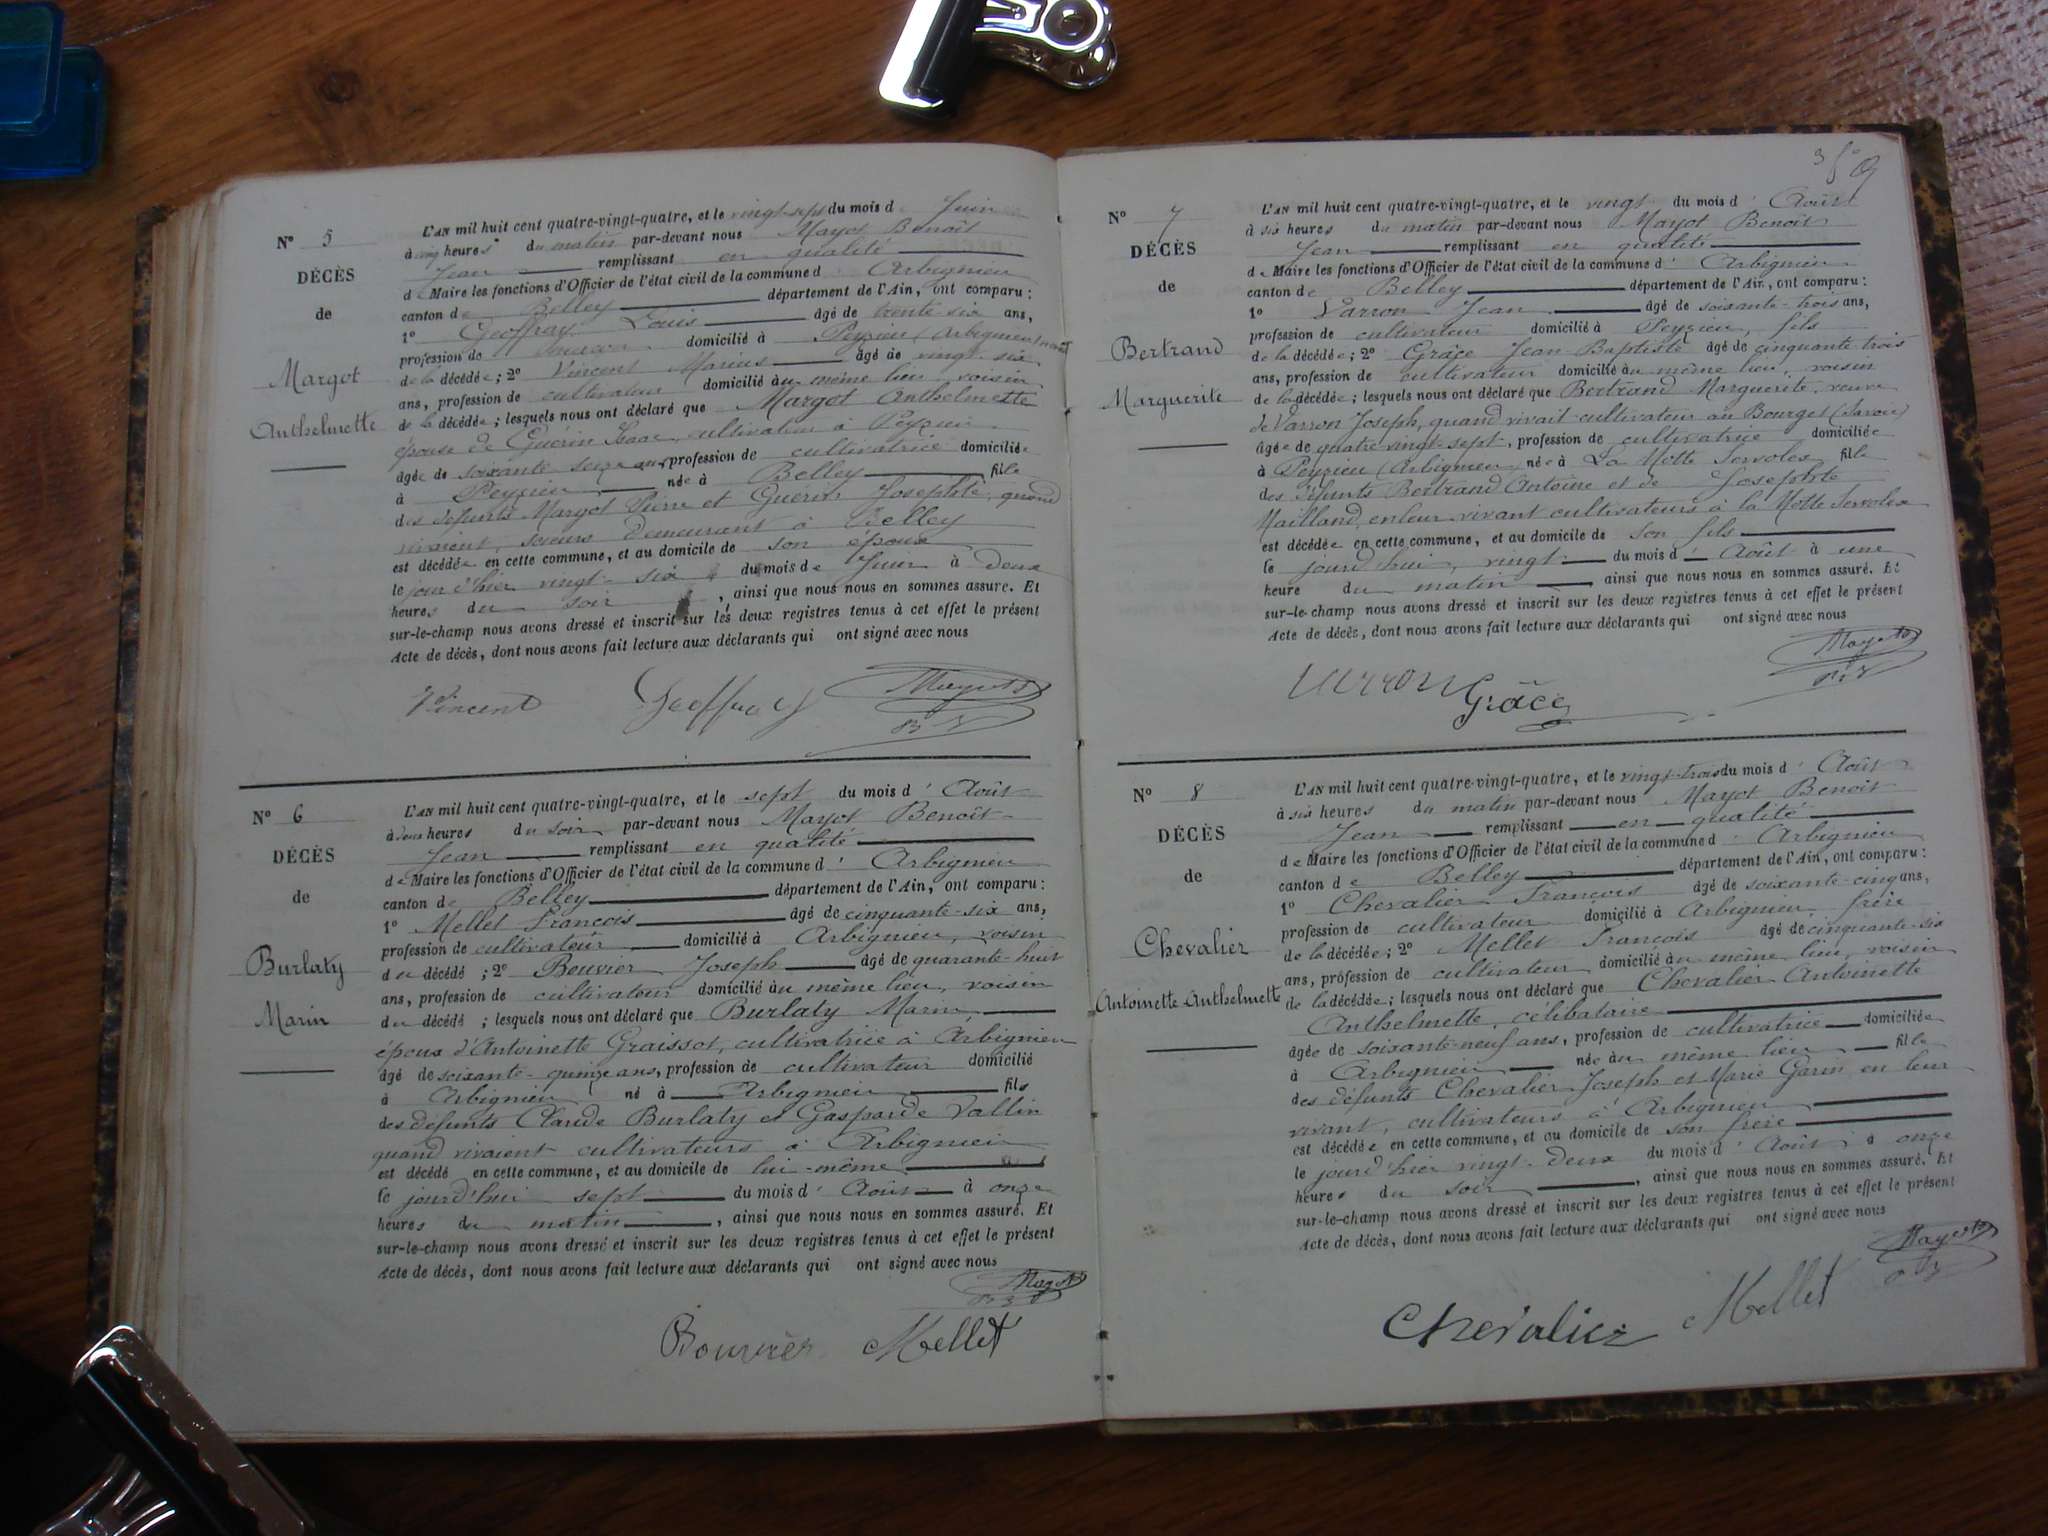 N° 5
DÉCÈS
de
Margot
Anthelmette
L'AN mil huit cent quatre-vingt-quatre, et le vingt-sept du mois de Juin
à cinq heures du matin par-devant nous Mayot Benoît
Jean remplissant en qualité
de Maire les fonctions d'Officier de l'état civil de la commune d' Arbignieu
canton de Belley département de l'Ain, ont comparu :
1° Geoffray Louis âgé de trente-six ans,
profession de domicilié à Peyzieu (Arbignieu)
de la décédée ; 2° Vincent Marius âgé de vingt-six
ans, profession de cultivateur domicilié au même lieu, voisin
de la décédée ; lesquels nous ont déclaré que Margot Anthelmette
épouse de Guérin Isaac, cultivateur à Peyzieu
âgée de soixante seize ans, profession de cultivatrice domiciliée
à Peyzieu née à Belley fille
des défunts Margot Pierre et Guérin Josephte, quand
vivaient, demeurant à Belley
est décédée en cette commune, et au domicile de son époux
le jour d'hier vingt-six du mois de Juin à deux
heures du soir, ainsi que nous nous en sommes assuré. Et
sur-le-champ nous avons dressé et inscrit sur les deux registres tenus à cet effet le présent
Acte de décès, dont nous avons fait lecture aux déclarants qui ont signé avec nous
Vincent Geoffray Mayot
N° 6
DÉCÈS
de
Burlaty
Marin
L'AN mil huit cent quatre-vingt-quatre, et le sept du mois d' Août
à deux heures du soir par-devant nous Mayot Benoît
Jean remplissant en qualité
de Maire les fonctions d'Officier de l'état civil de la commune d' Arbignieu
canton de Belley département de l'Ain, ont comparu :
1° Mellet François âgé de cinquante-six ans,
profession de cultivateur domicilié à Arbignieu, voisin
du décédé ; 2° Bouvier Joseph âgé de quarante-huit
ans, profession de cultivateur domicilié au même lieu, voisin
du décédé ; lesquels nous ont déclaré que Burlaty Marin
époux d'Antoinette Graissot, cultivatrice à Arbignieu
âgé de soixante-quinze ans, profession de cultivateur domicilié
à Arbignieu né à Arbignieu fils
des défunts Claude Burlaty et Gasparde Vallin
quand vivaient cultivateurs à Arbignieu
est décédé en cette commune, et au domicile de lui-même
le jourd'hui sept du mois d' Août à onze
heures du matin, ainsi que nous nous en sommes assuré. Et
sur-le-champ nous avons dressé et inscrit sur les deux registres tenus à cet effet le présent
Acte de décès, dont nous avons fait lecture aux déclarants qui ont signé avec nous
Mayot
Bouvier Mellet
N° 7
DÉCÈS
de
Bertrand
Marguerite
L'AN mil huit cent quatre-vingt-quatre, et le vingt du mois d' Août
à six heures du matin par-devant nous Mayot Benoît
Jean remplissant en qualité
de Maire les fonctions d'Officier de l'état civil de la commune d' Arbignieu
canton de Belley département de l'Ain, ont comparu :
1° Varron Jean âgé de soixante-trois ans,
profession de cultivateur domicilié à Peyzieu, fils
de la décédée ; 2° Grâce Jean Baptiste âgé de cinquante-trois
ans, profession de cultivateur domicilié au même lieu, voisin
de la décédée ; lesquels nous ont déclaré que Bertrand Marguerite, veuve
de Varron Joseph, quand vivait cultivateur au Bourget (Savoie)
âgée de quatre-vingt-sept, profession de cultivatrice domiciliée
à Peyzieu (Arbignieu) née à La Motte Servolex fille
des défunts Bertrand Antoine et de Josephte
Mailland, en leur vivant cultivateurs à la Motte Servolex
est décédée en cette commune, et au domicile de son fils
le jourd'hui, vingt du mois d' Août à une
heure du matin, ainsi que nous nous en sommes assuré. Et
sur-le-champ nous avons dressé et inscrit sur les deux registres tenus à cet effet le présent
Acte de décès, dont nous avons fait lecture aux déclarants qui ont signé avec nous
Mayot
Varron Grâce
N° 8
DÉCÈS
de
Chevalier
Antoinette-Anthelmette
L'AN mil huit cent quatre-vingt-quatre, et le vingt-trois du mois d' Août
à six heures du matin par-devant nous Mayot Benoît
Jean remplissant en qualité
de Maire les fonctions d'Officier de l'état civil de la commune d' Arbignieu
canton de Belley département de l'Ain, ont comparu :
1° Chevalier François âgé de soixante-cinq ans,
profession de cultivateur domicilié à Arbignieu, frère
de la décédée ; 2° Mellet François âgé de cinquante-six
ans, profession de cultivateur domicilié au même lieu, voisin
de la décédée ; lesquels nous ont déclaré que Chevalier Antoinette
Anthelmette, célibataire
âgée de soixante-neuf ans, profession de cultivatrice domiciliée
à Arbignieu née au même lieu fille
des défunts Chevalier Joseph et Marie Garin en leur
vivant, cultivateurs à Arbignieu
est décédée en cette commune, et au domicile de son frère
le jourd'hier vingt-deux du mois d' Août à onze
heures du soir, ainsi que nous nous en sommes assuré. Et
sur-le-champ nous avons dressé et inscrit sur les deux registres tenus à cet effet le présent
Acte de décès, dont nous avons fait lecture aux déclarants qui ont signé avec nous
Mayot
Chevalier Mellet